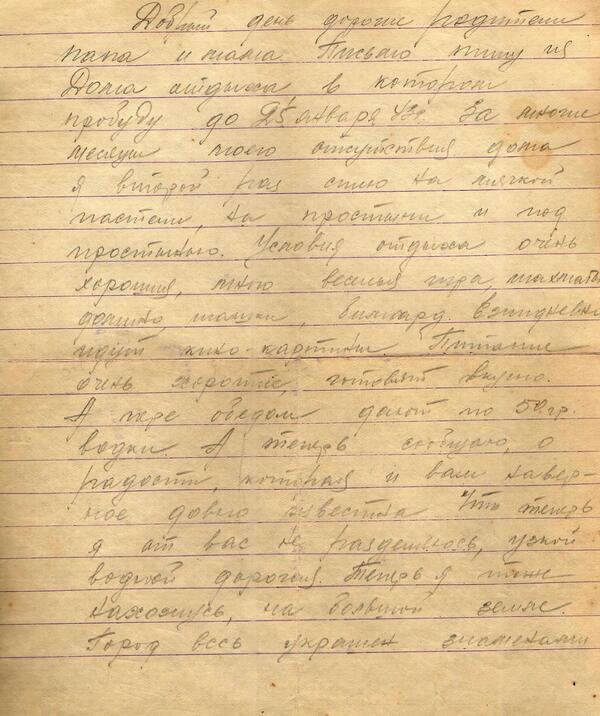 Добрый день дорогие родители
папа и мама. Письмо пишу из
Дома отдыха, в котором
пробуду до 25 января 43г. За многие
месяцы моего отсутствия дома
я второй раз сплю на мягкой
пастели, на простыни и под
простынью. Условия отдыха очень
хорошия, много веселья игра, шахматы
домино, шашки, бильярд. Ежидневно
идут кино-картины Питание
очень хорошее, готовят вкусно.
А пере обедом дают по 50 гр.
водки. А теперь сообщаю, о
радости, которая и вам навер-
ное давно известна Что теперь
я от вас не разделяюсь, узкой
водной дорогой. Теперь я тоже
нахожусь, на большой земле.
Город весь украшен знаменами